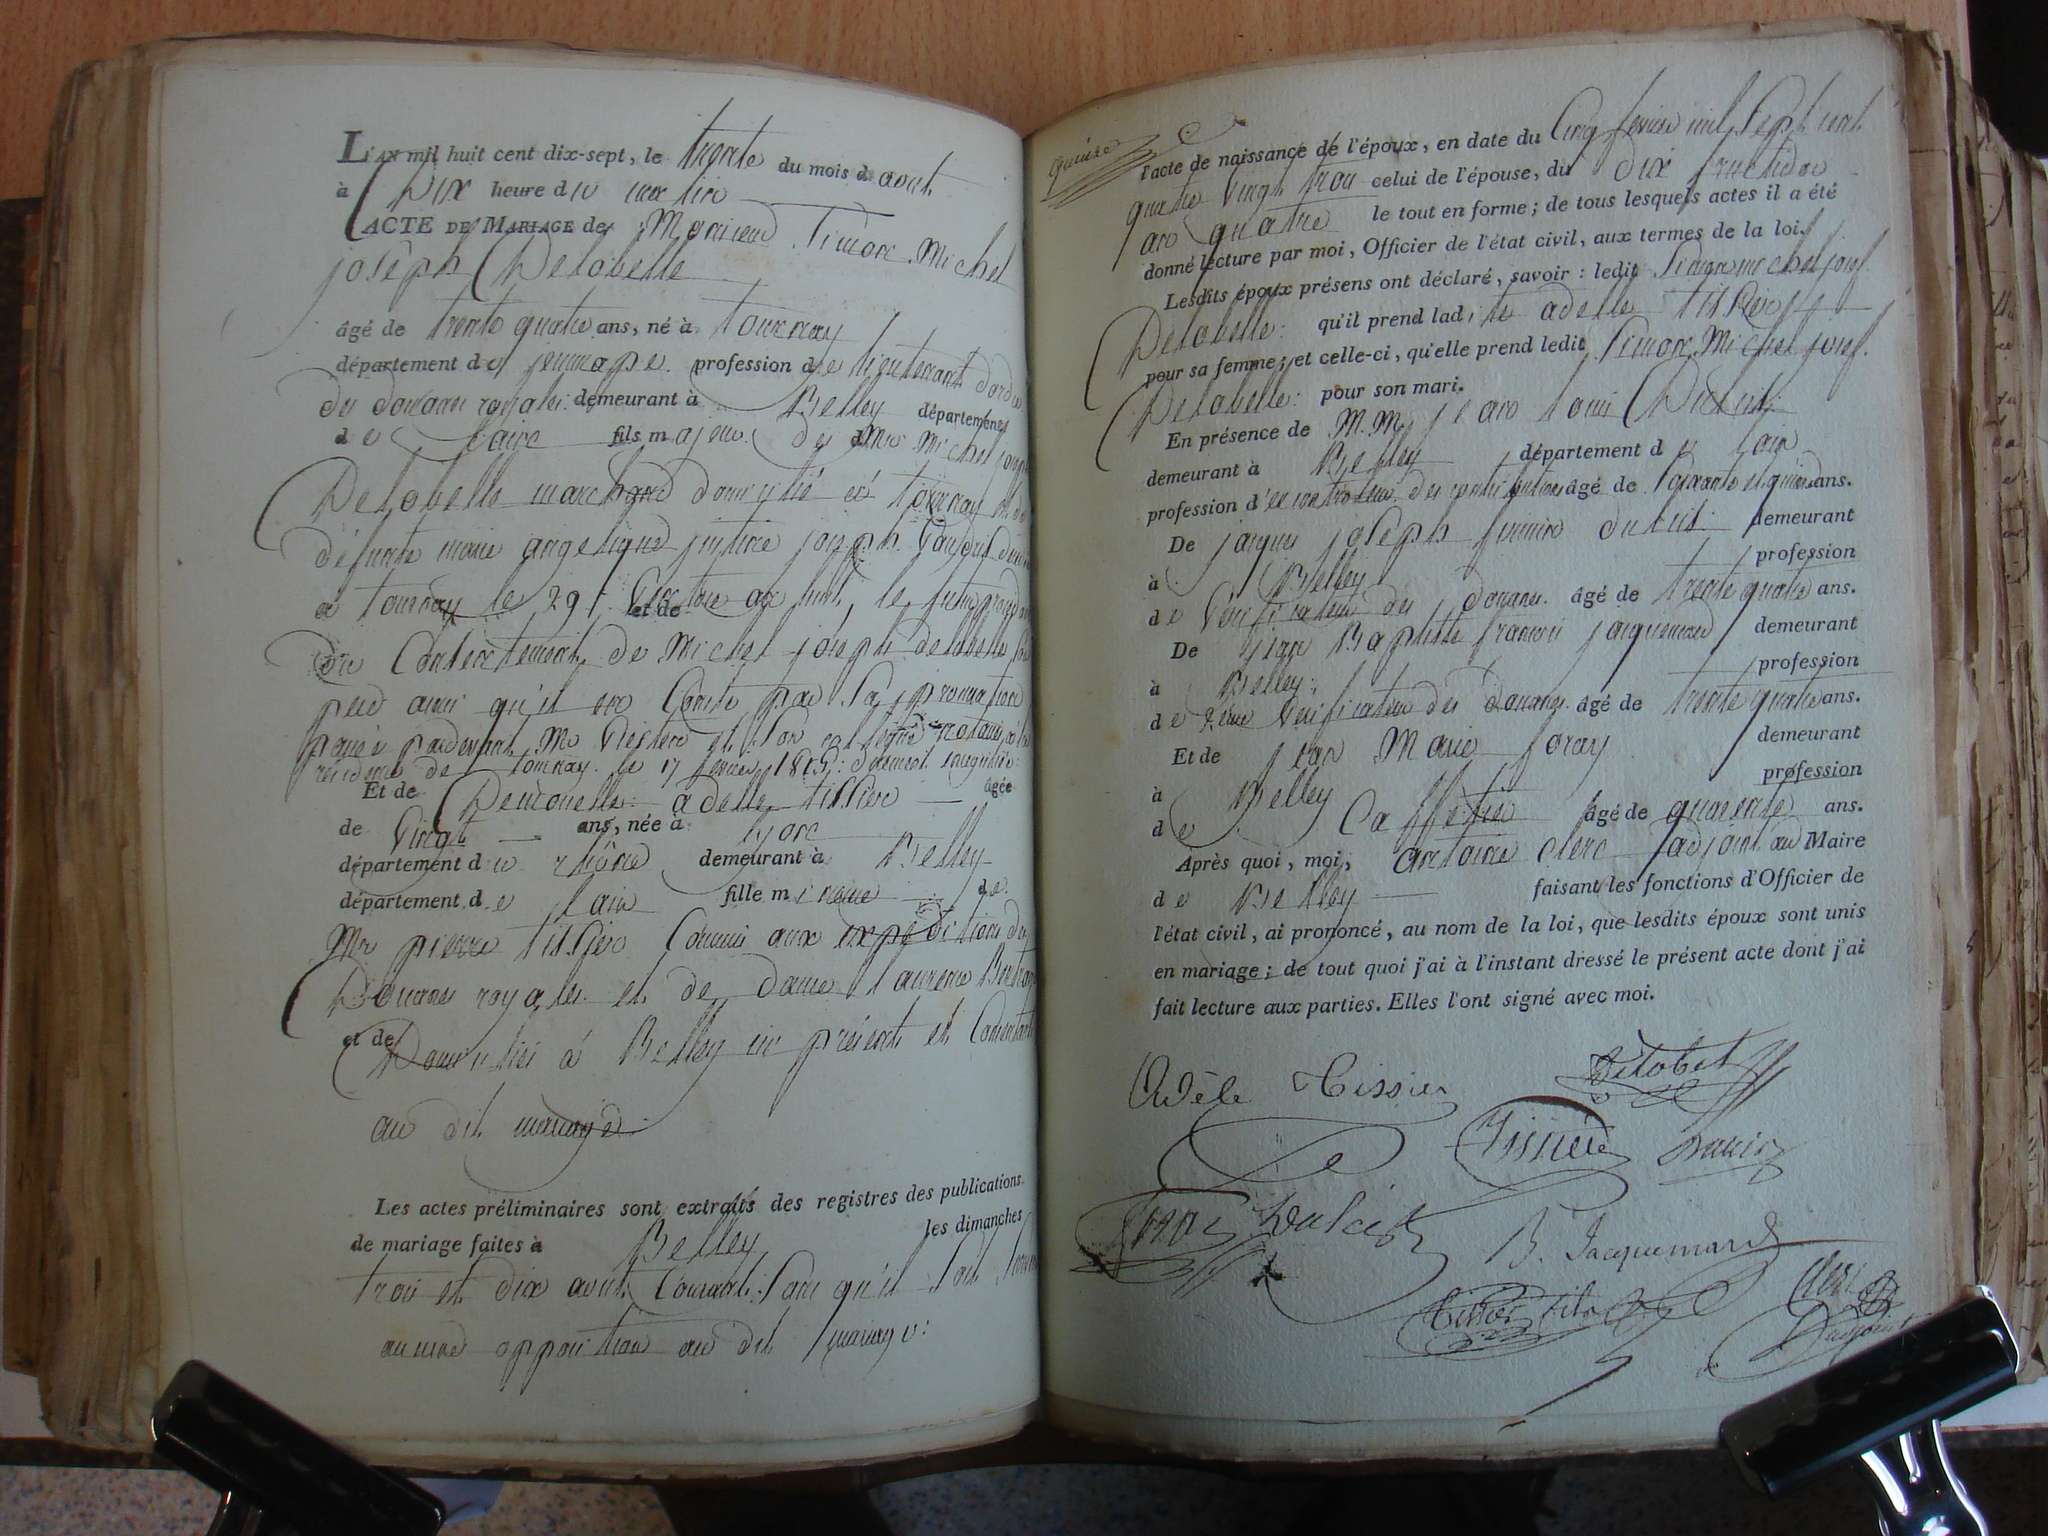 L'AN mil huit cent dix-sept, le trente du mois d'aout
à Dix heure du matin
ACTE DE MARIAGE de Monsieur Simon Michel
joseph Delobelle
âgé de trente quatre ans, né à tournay
département de jemmape profession de lieutenant d'ordre
des douanes royales demeurant à Belley département
de l'ain fils majeur des Mr Michel joseph
Delobelle marchand domicilié à tournay et de
défunte marie angelique justine joseph
à tournay le 29 an huit, le futur
du Consentement de Michel joseph delobelle son
pere ainsi qu'il en Conste par la procuration
passée pardevant Me et son collègue notaires à la
résidence de tournay le 17 fevrier 1815 duement enregistrée
Et de Demoiselle adelle tissier âgée
de Vingt ans, née à lyon
département du rhône demeurant à Belley
département de l'ain fille mineure de
Mr pierre tissier Commis aux expéditions des
Douanes royales et de dame laurence
et de Domiciliés à Belley ici présents et Consentants
au dit mariage
Les actes préliminaires sont extraits des registres des publications
de mariage faites à Belley les dimanches
trois et dix aout Courant sans qu'il soit
aucune opposition au dit mariage
quinze
l'acte de naissance de l'époux, en date du Cinq fevrier mil sept cent
quatre Vingt trois celui de l'épouse, du dix fructidor
an quatre le tout en forme; de tous lesquels actes il a été
donné lecture par moi, Officier de l'état civil, aux termes de la loi.
Lesdits époux présens ont déclaré, savoir: ledit Simon michel josef
Delobelle qu'il prend ladite adelle tissier
pour sa femme; et celle-ci, qu'elle prend ledit Simon Michel josef
Delobelle pour son mari.
En présence de M.M. jean louis Dubuit
demeurant à Belley département de l'ain
profession d'ex controleur des contributions âgé de soixante et quinze ans.
De jacques joseph firmin dutuit demeurant
à Belley profession
de Vérificateur des douanes âgé de trente quatre ans.
De jean Baptiste francois jacquemard demeurant
à Belley profession
de 2ème Vérificateur des Douanes âgé de trente quatre ans.
Et de jean Marie foray demeurant
à Belley profession
de Caffetier âgé de quarente ans.
Après quoi, moi, antoine clerc adjoint au Maire
de Belley faisant les fonctions d'Officier de
l'état civil, ai prononcé, au nom de la loi, que lesdits époux sont unis
en mariage; de tout quoi j'ai à l'instant dressé le présent acte dont j'ai
fait lecture aux parties. Elles l'ont signé avec moi.
Adèle Tissier Delobel
Tissier
B. Jacquemard
Tissier fils Clerc
adjoint